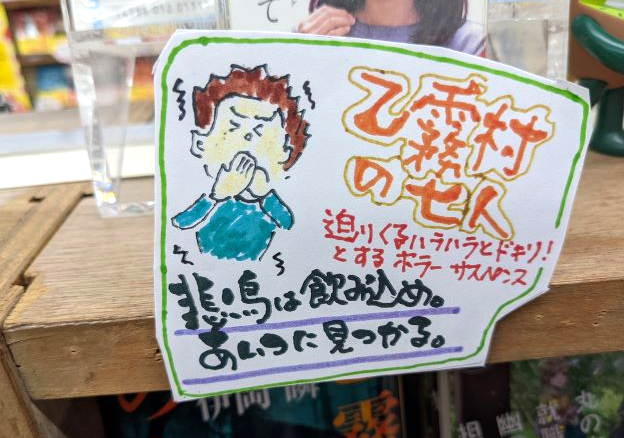 て
乙霧村
の七人
迫りくるハラハラとドキリ!
とする ホラー サスペンス
悲鳴は飲み込め。
あいつに見つかる。
の
伊岡 瞬
霧
相
幽
就
丸の